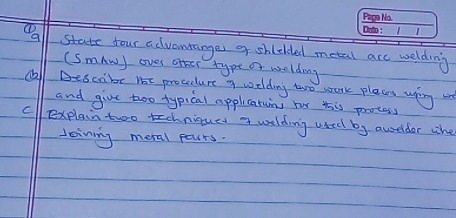 Page No.
Date: / /
① a State four advantages of shielded metal arc welding
(SMAW) over other type of welding
(b) Describe the procedure of welding two work places using
and give two typical applications for this process
c Explain two techniques of welding used by a welder
Joining metal parts.